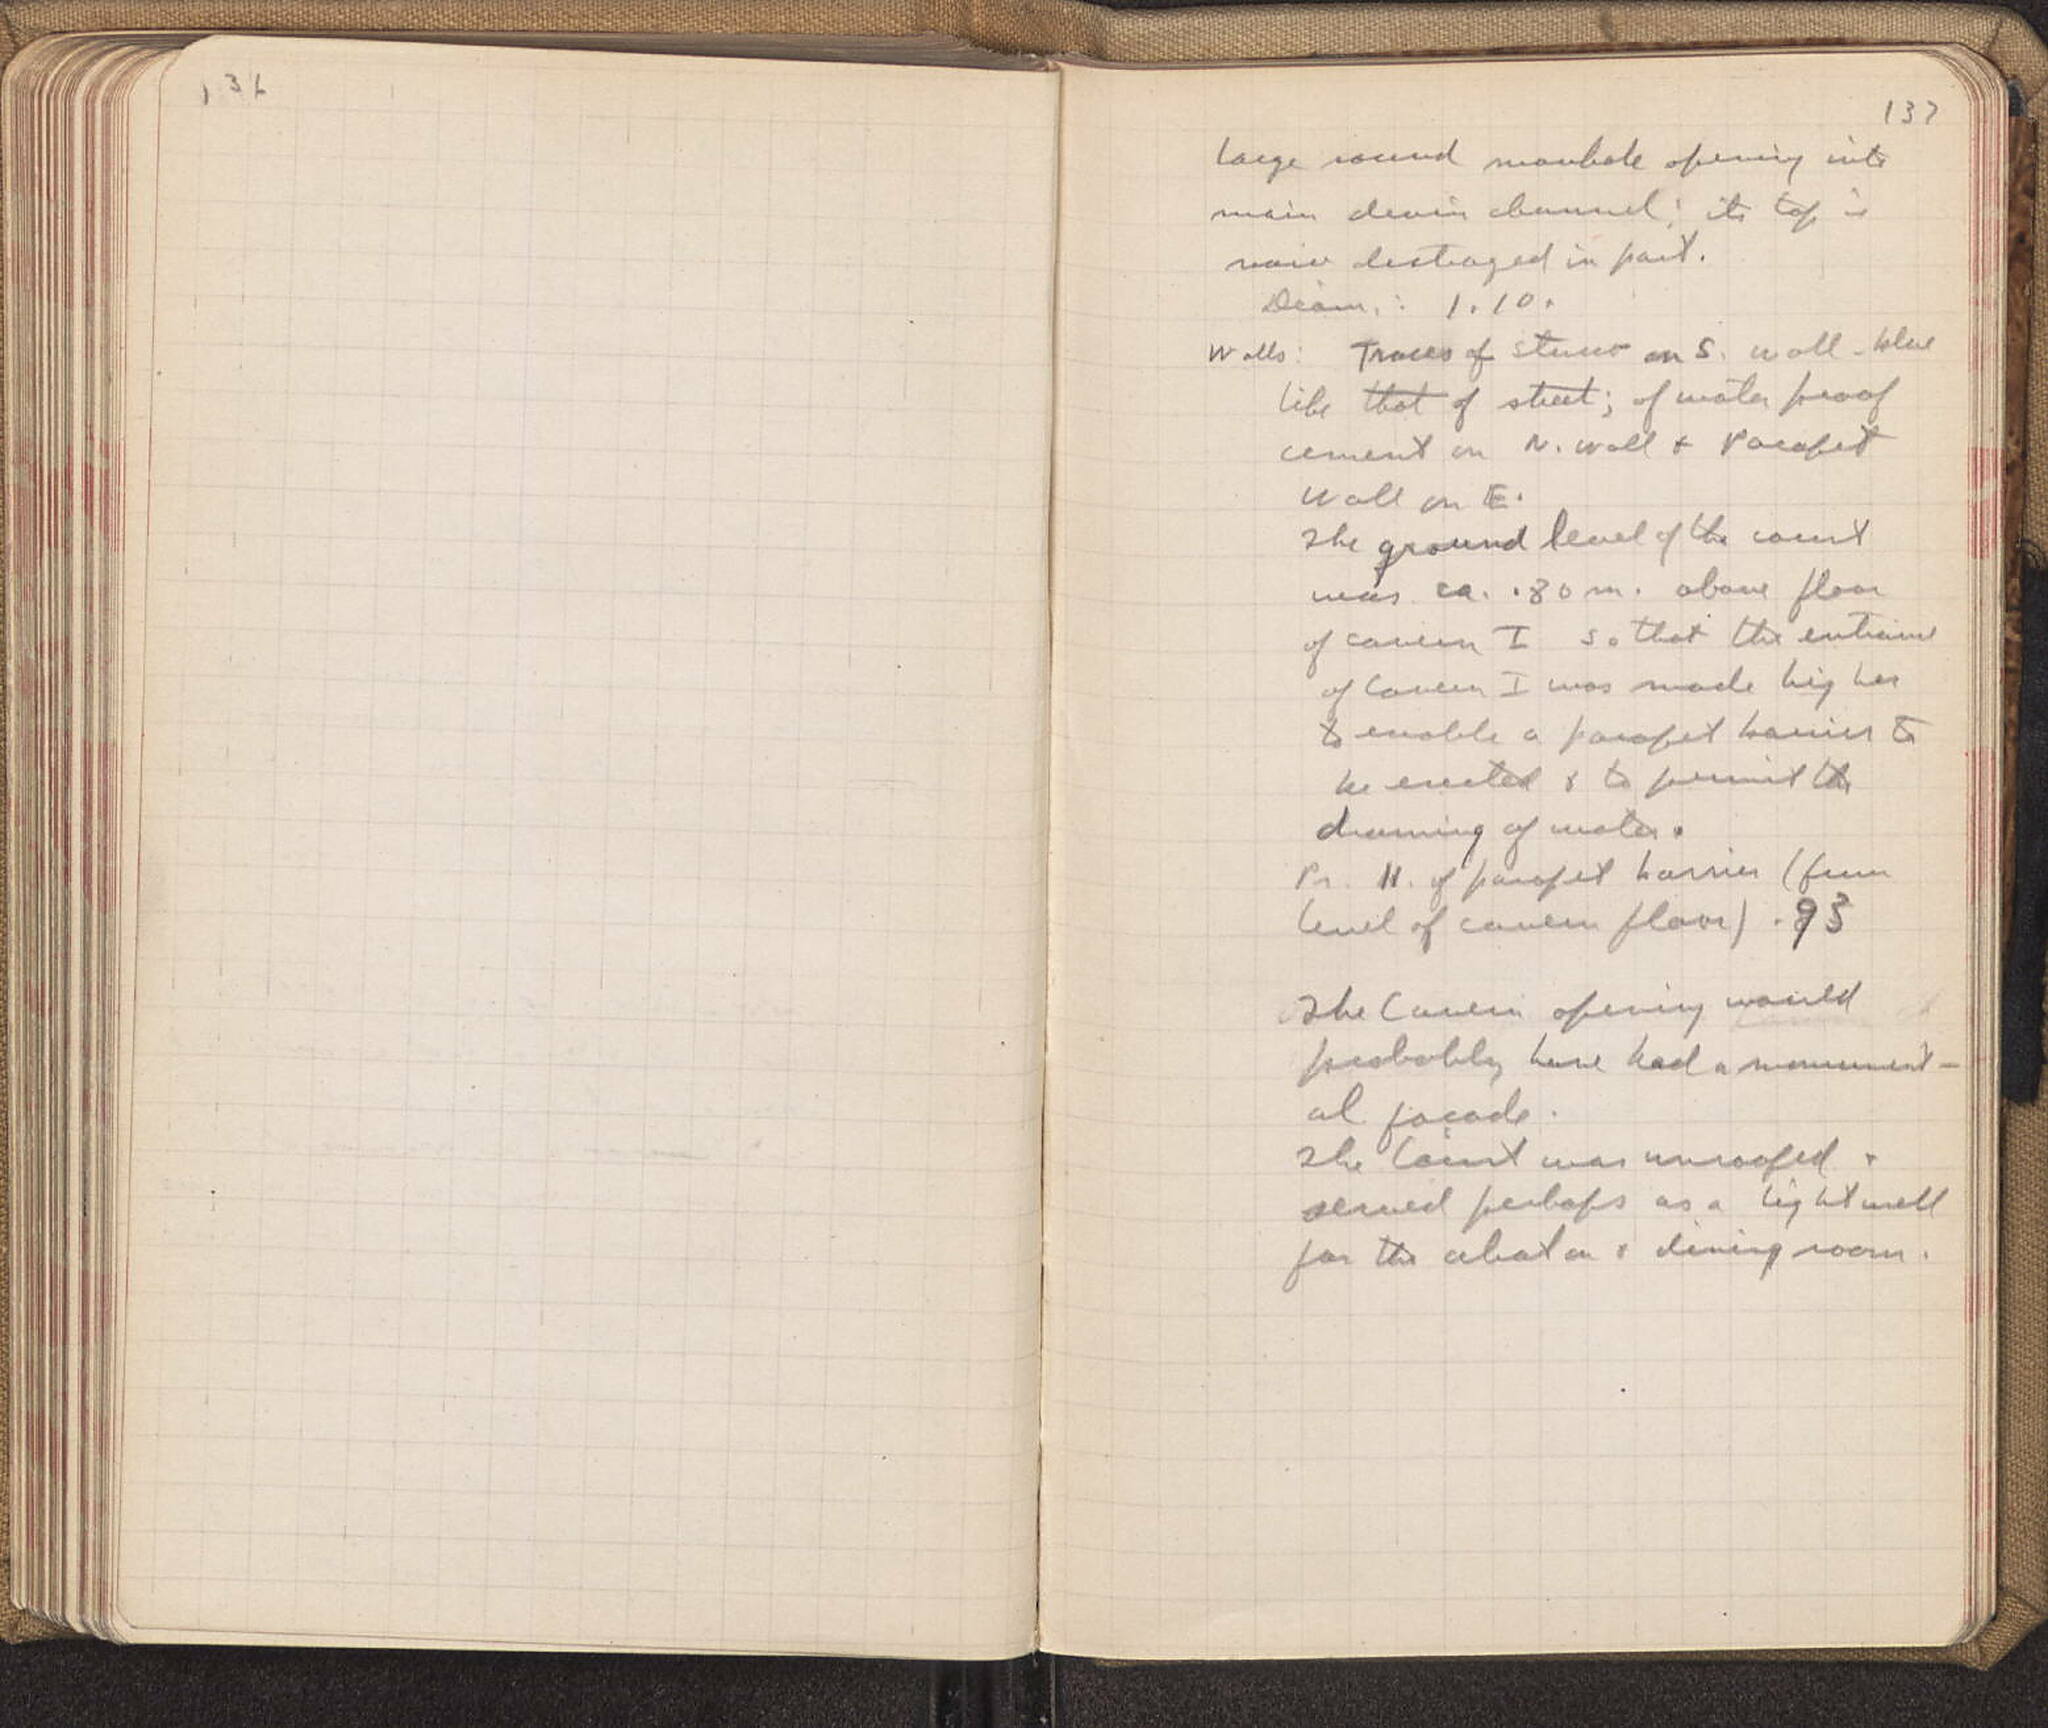 136
137
large round manhole opening into
main drain channel; its top is
now destroyed in part.
Diam.: 1.10.
Walls: Traces of stucco on S. wall - blue
like that of street; of water proof
cement on N. wall + parapet
wall on E.
The ground level of the court
was ca. .80 m. above floor
of cavern I so that the entrance
of Cavern I was made higher
to enable a parapet barrier to
be erected & to permit the
drawing of water.
Pr. H. of parapet barrier (from
level of cavern floor) .93
The Cavern opening would
probably have had a monument-
al facade.
The Court was unroofed +
served perhaps as a lightwell
for the abaton & dining room.